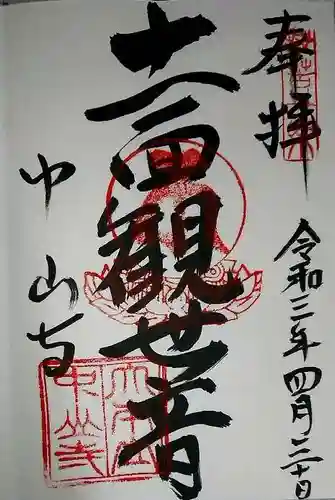 奉拝
令和三年四月二十日
十一面観世音
中山寺
中山寺